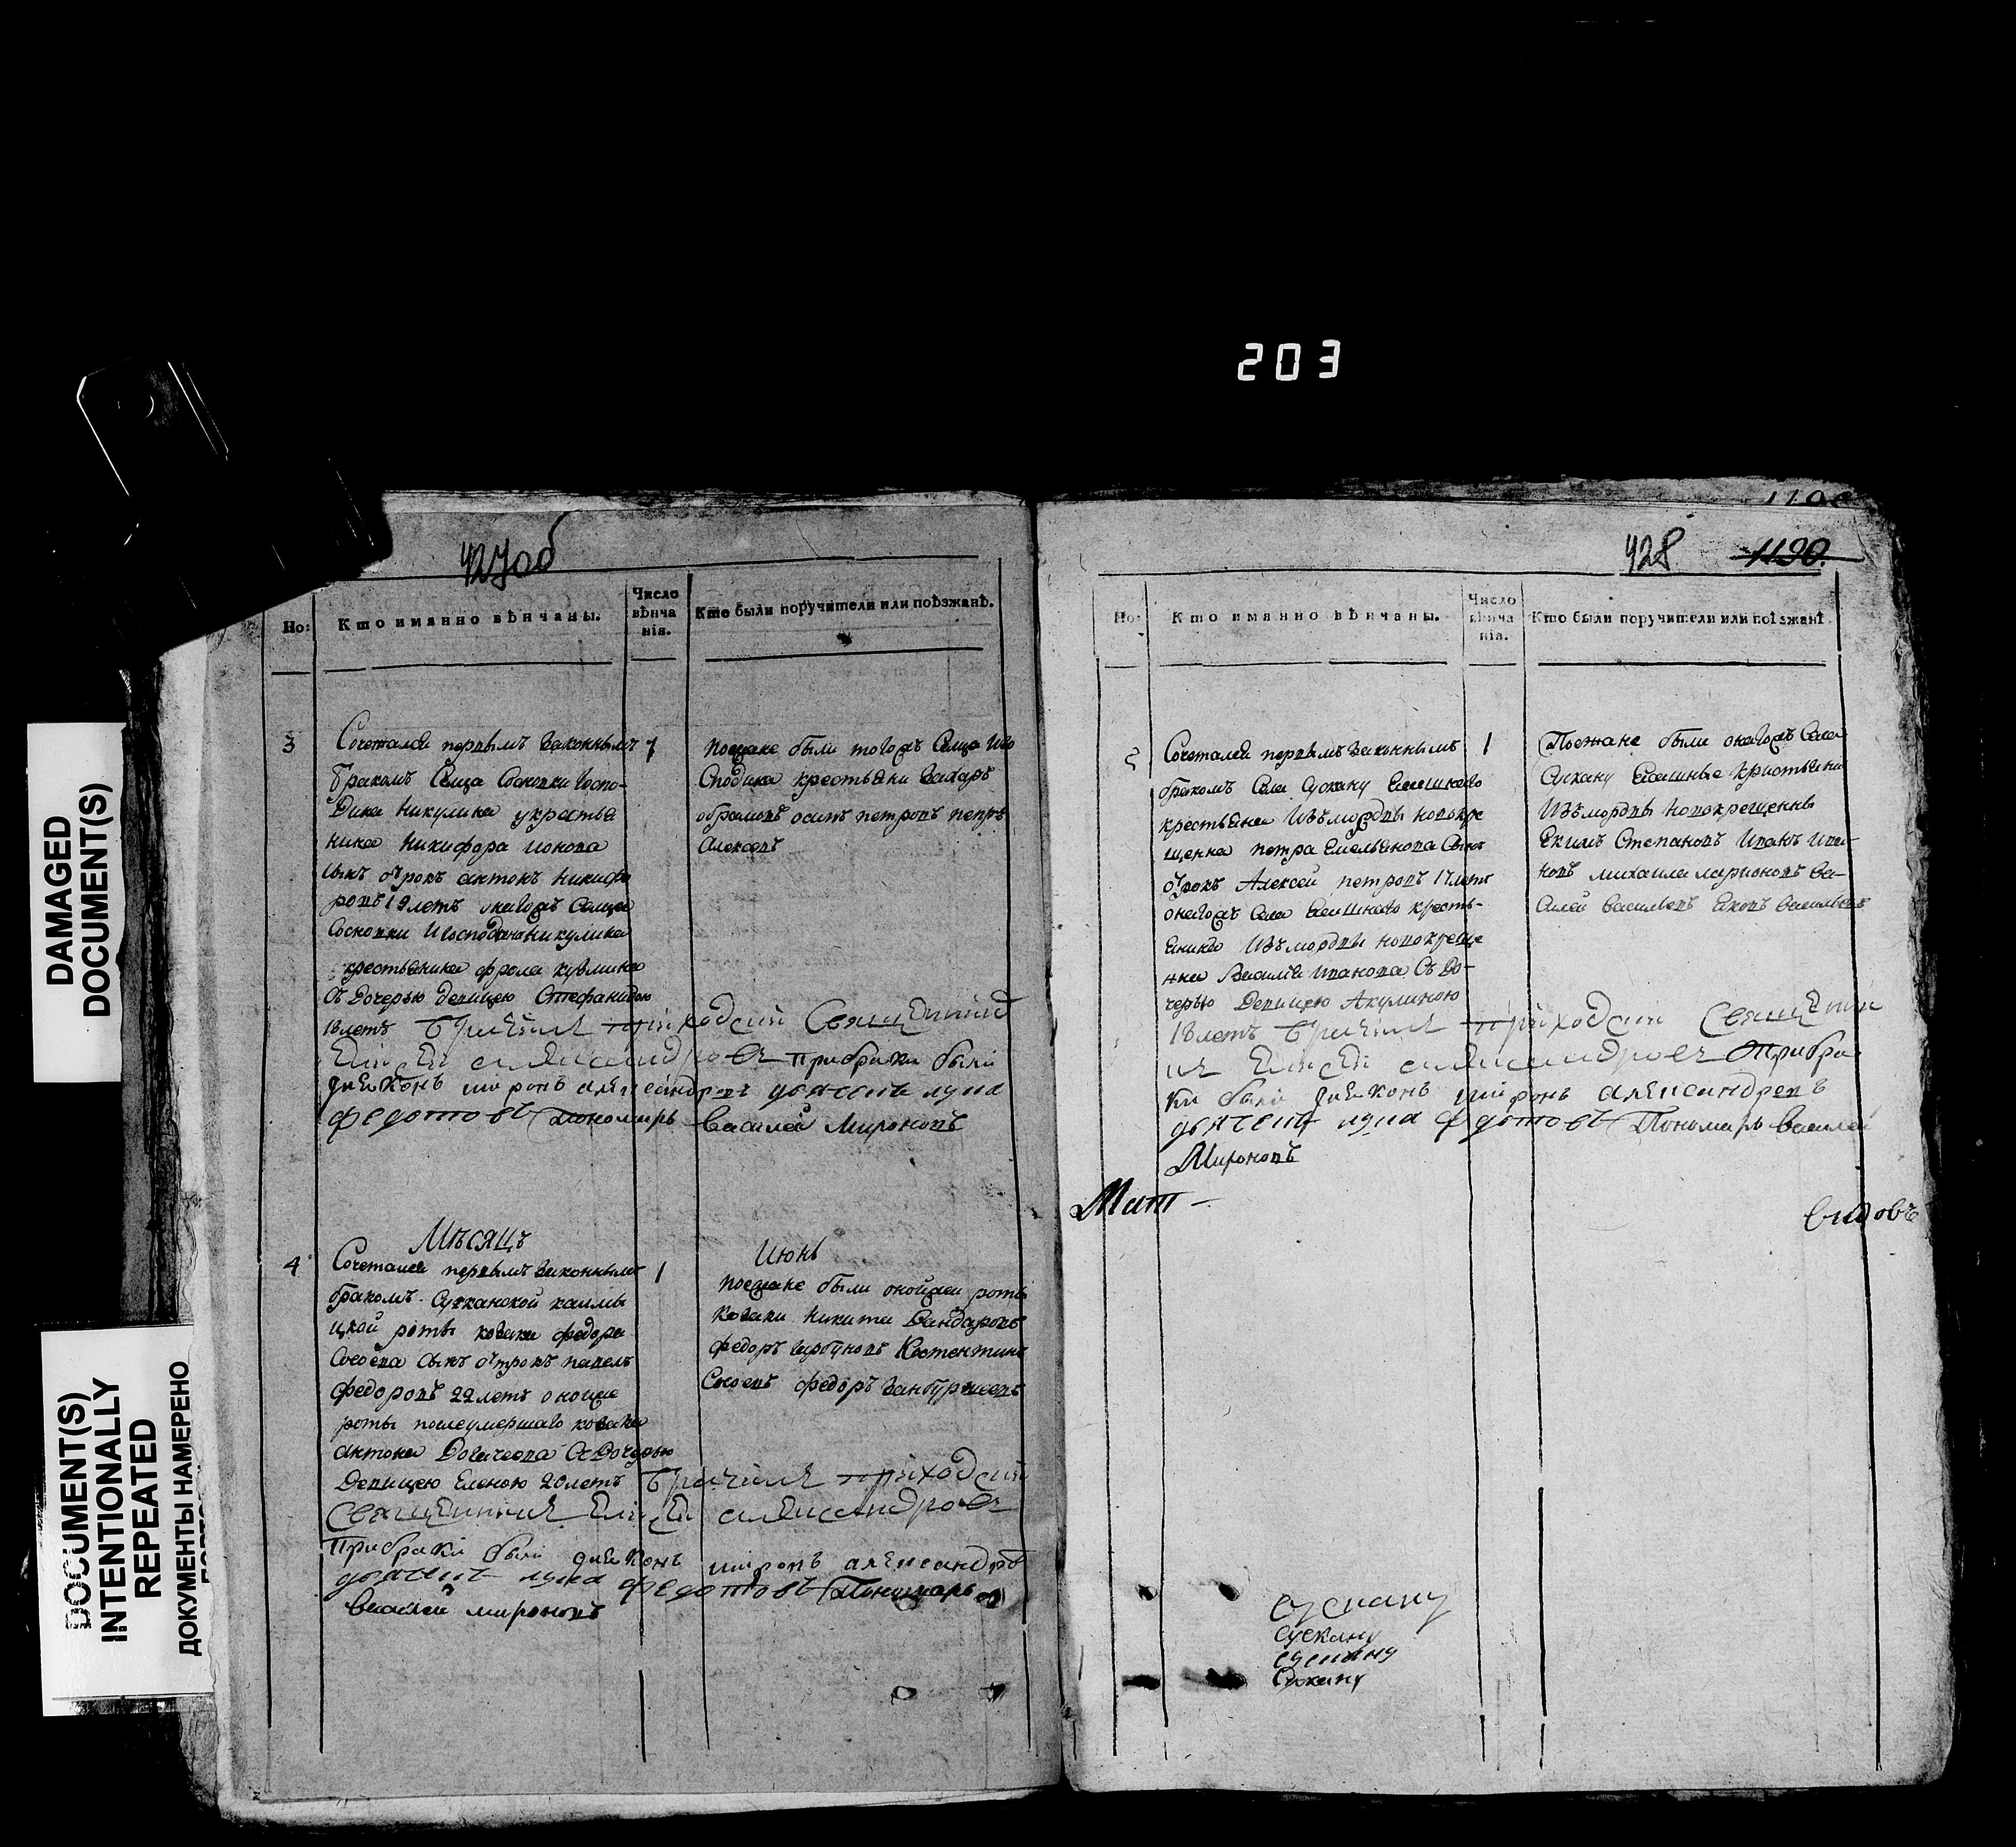 203
DAMAGED
DOCUMENT(S)
DOCUMENT(S)
INTENTIONALLY
REPEATED
ДОКУМЕНТЫ НАМЕРЕНО
427об
Но:
Кто имянно вѣнчаны.
Число
вѣнча
нія.
Кто были поручители или поѣзжанѣ.
3
Сочетался первымъ законнымъ
бракомъ Селца Сосновки Госпо-
дина Никулина укрестья
нина Никифора Ионова
сынъ отрокъ Антонъ Никифо
ровъ 19 летъ онагожъ Селца
Сосновки Игосподина Никулина
крестьянина Фрола Кузмина
Съ Дочерью девицею Стефанидою
18 летъ Врачилъ приходский Священникъ
Елисей Александровъ При браки были
диаконъ Миронъ Александровъ дьячекъ Лука
Федотовъ Пономарь Василей Мироновъ
7
Поезжане были тогожъ Селца Иго
Сподина крестьяни Захаръ
Абрамовъ Осипъ Петровъ Петръ
Алексевъ
Мѣсяцъ
Июнь
4
Сочетался первымъ законнымъ
бракомъ Сусканской калмы
цкой роты козака Федора
сынъ отрокъ Павелъ
Федоровъ 22 летъ оноиже
роты послеумершаго козака
Антона Съ Дочерью
Девицею Еленою 20 летъ Врачилъ приходский
Священникъ Елисей Александровъ
При браки были диаконъ Миронъ Александровъ
дьячекъ Лука Федотовъ Пономарь
Василей Мироновъ
1
Поезжане были онойжеи роты
Козаки Никита
Федоръ Костентинъ
Федоръ
428 1190.
Но:
Кто имянно вѣнчаны.
Число
вѣнча
нія.
Кто были поручители или поѣзжанѣ
5
Сочетался первымъ законнымъ
бракомъ Села Сускану Ясашнаго
крестьянина Изъмордвы новокре
щенна Петра Емельянова Сынъ
отрокъ Алексей Петровъ 17 летъ
онагожъ Села Ясашнаго кресть-
янина Изъмордвы новокреще
нна Василья Иванова Съ До-
черью Девицею Акулиною
18 летъ Врачилъ приходский Священни
къ Елисей Александровъ При бра
ки были диаконъ Миронъ Александровъ
дьячекъ Лука Федотовъ Пономарь Василей
Мироновъ
1
Поезжане были онагожъ Села
Сускану Ясашные Кристьяни
Изъмордвы Новокрещенны
Екимъ Степановъ Иванъ Ива-
новъ Михаила Ларионовъ Ва-
силей Васильевъ Яковъ Васильевъ
Сускану
Сускану
Сускану
Сускану